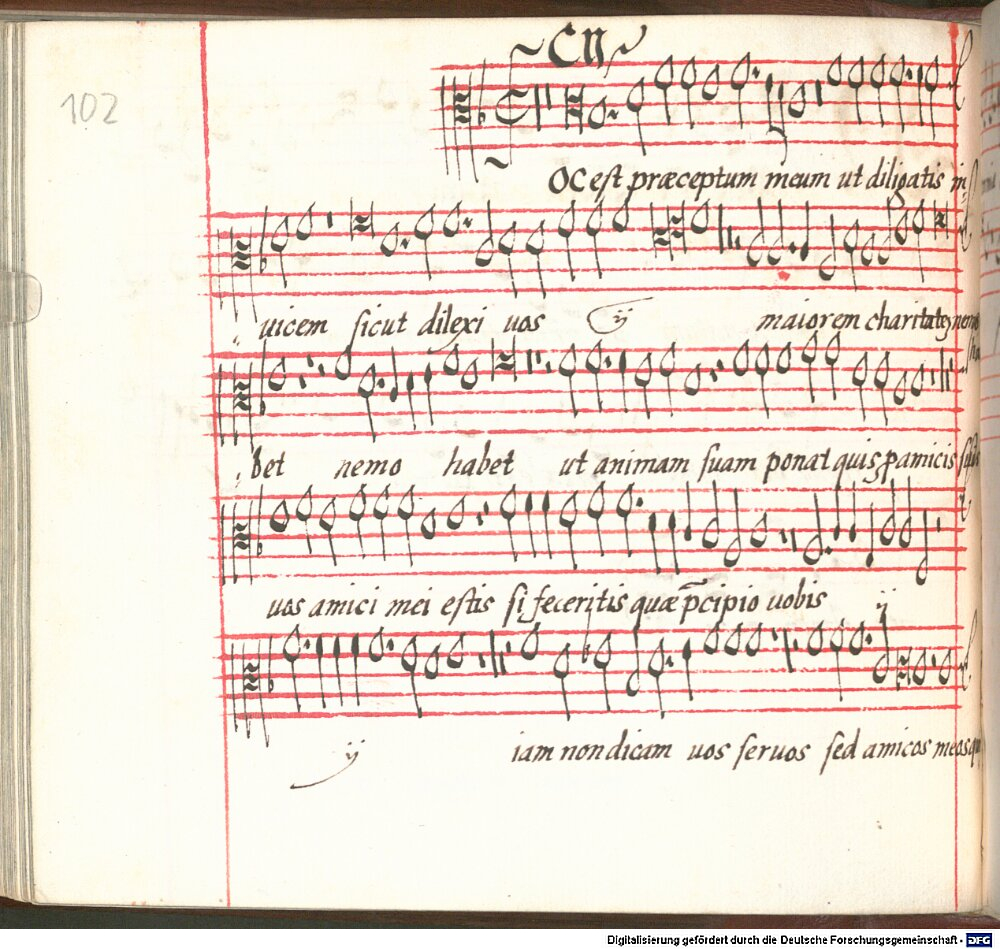 CII
102
OC est præceptum meum ut diligatis in
uicem sicut dilexi uos ij maiorem charitatē nemo
bet nemo habet ut animam suam ponat quis p amicis suis
uos amici mei estis si feceritis quæ p̄cipio uobis ij
ij iam non dicam uos seruos sed amicos meos qui
Digitalisierung gefördert durch die Deutsche Forschungsgemeinschaft - DFG